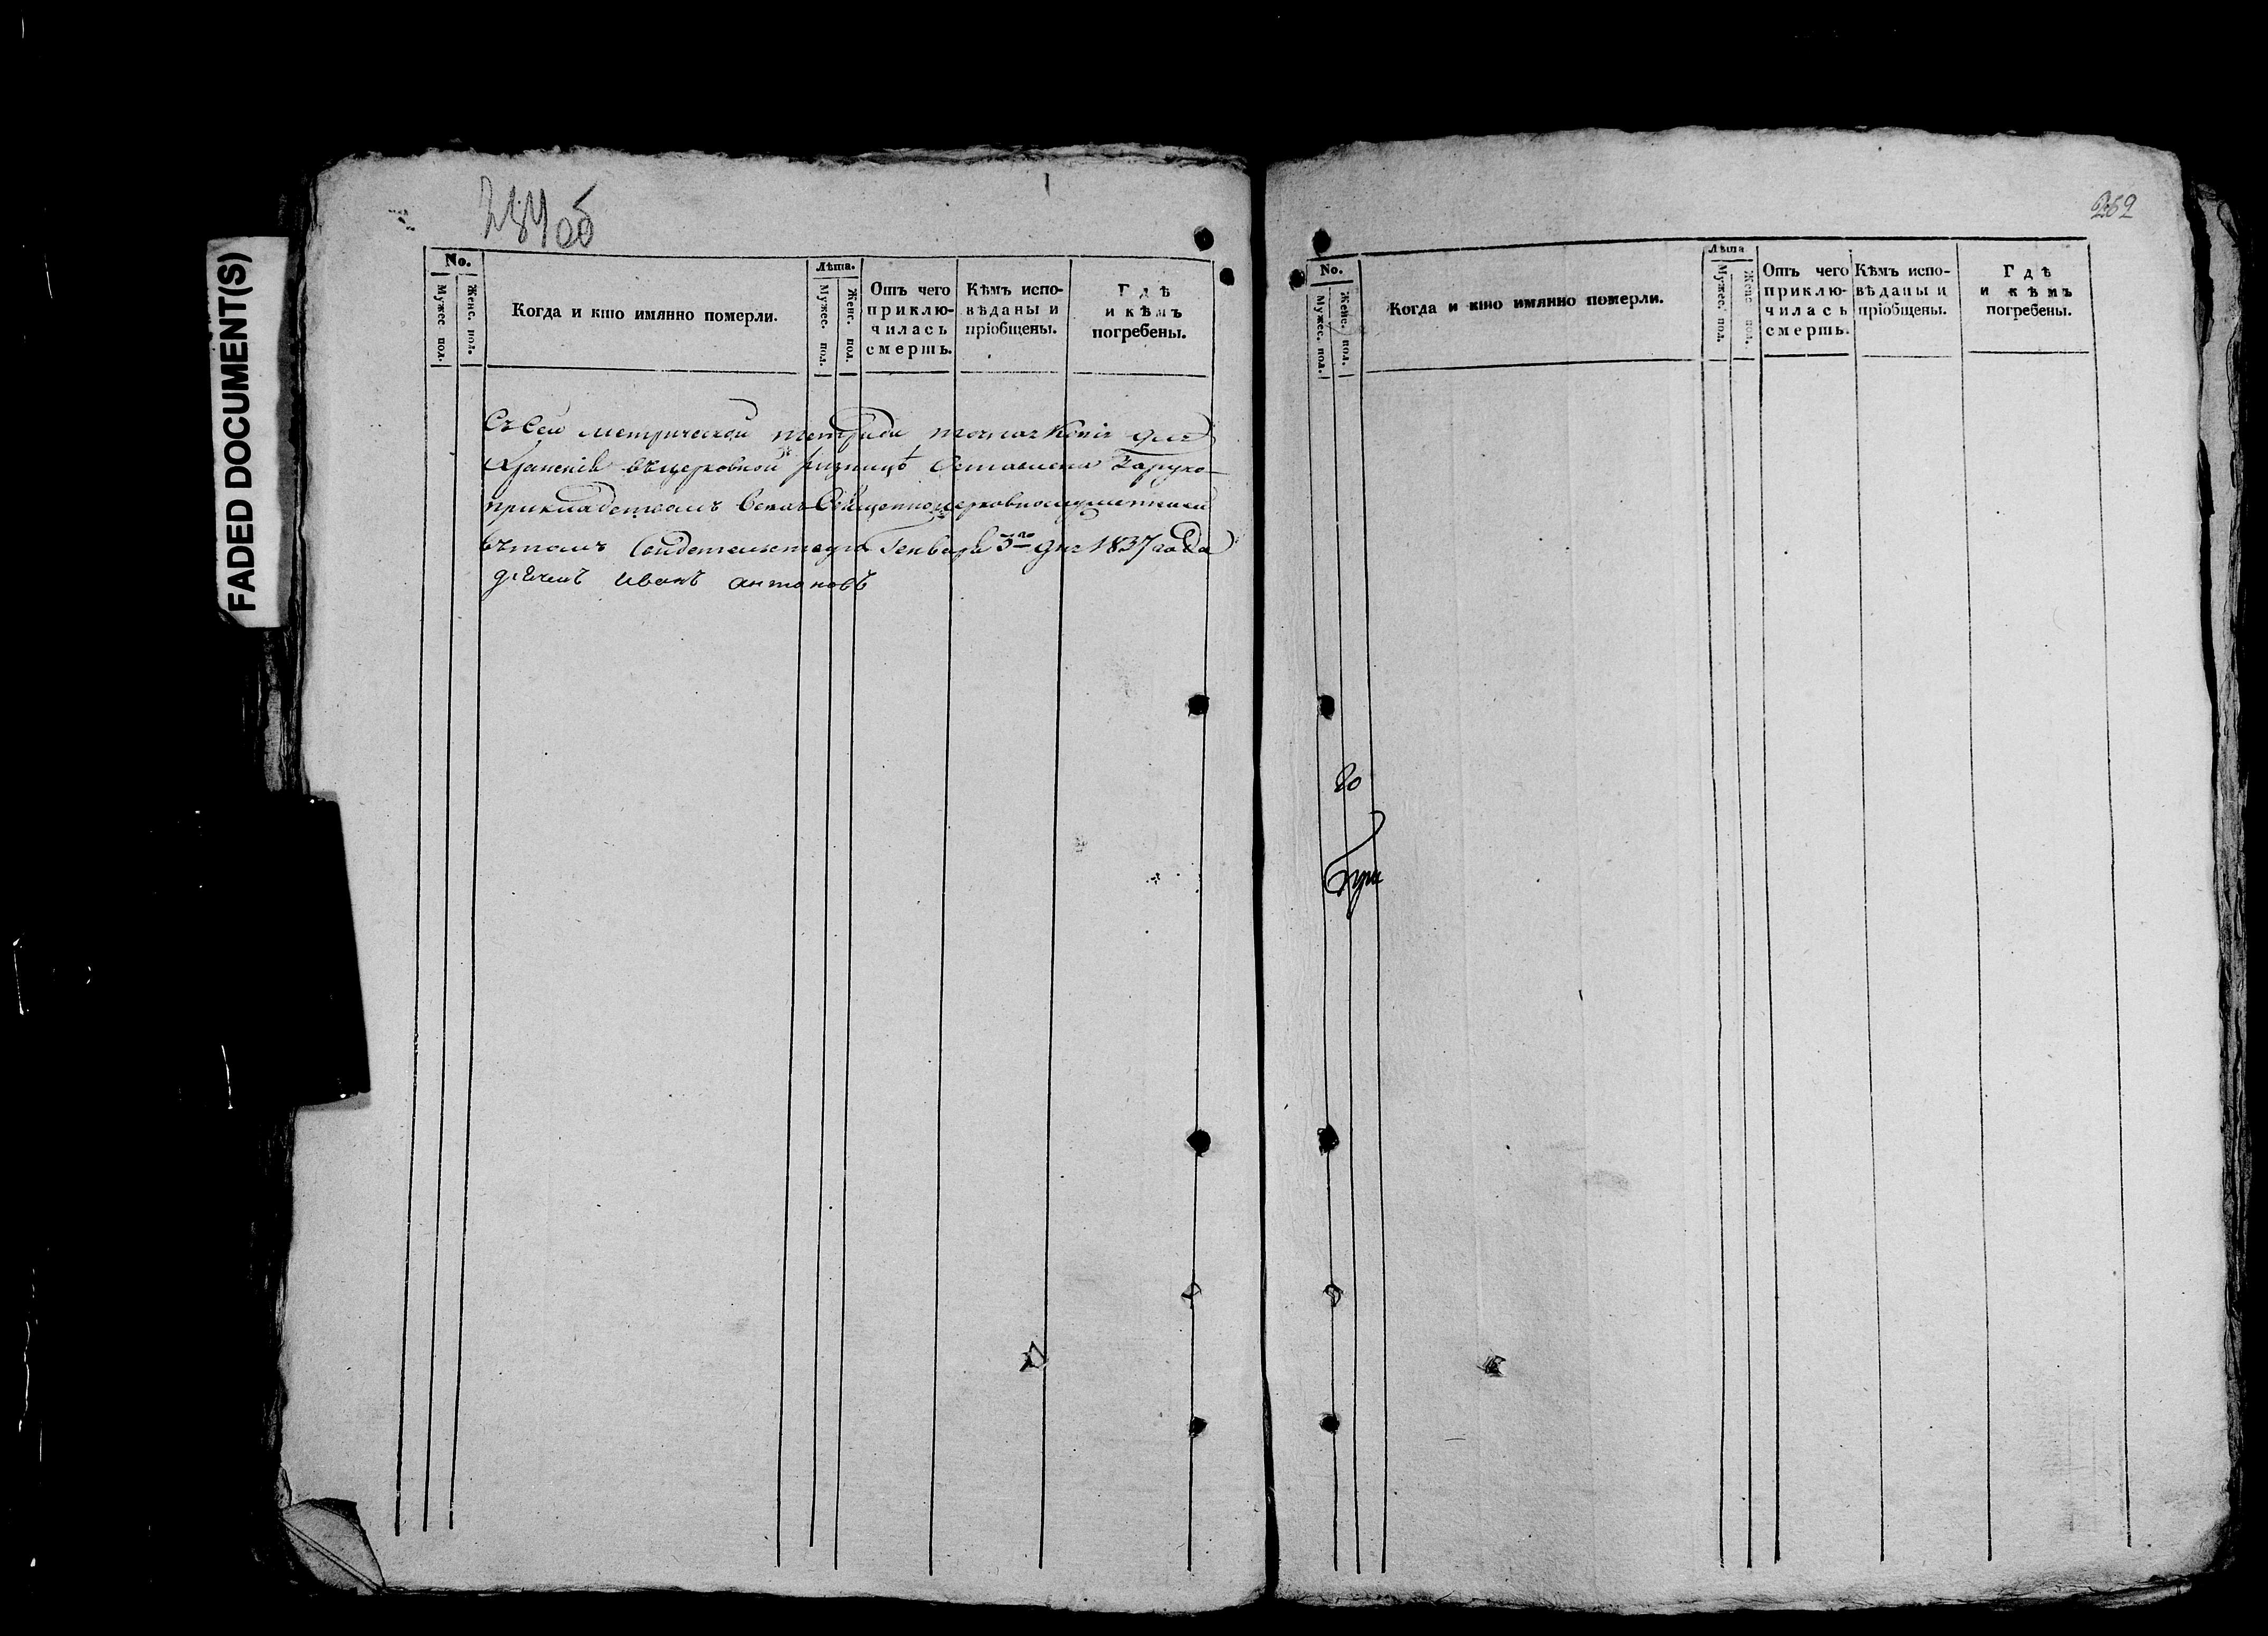 FADED DOCUMENT(S)
284об
No.
Мужес. пол.
Женс. пол.
Когда и кто имянно померли.
Лѣта.
Мужес. пол.
Женс. пол.
Отъ чего
приклю-
чилась
смерть.
Кѣмъ испо-
вѣданы и
пріобщены.
Гдѣ
и кѣмъ
погребены.
Съ сей метрической тетради точная копія для
храненія въ церковной ризницѣ оставлена за руко-
прикладствомъ всехъ священноцерковнослужителей
въ томъ свидетельствую Генваря 3го дня 1837 года
дьячекъ Иванъ Антоновъ
262
No.
Мужес. пол.
Женс. пол.
Когда и кто имянно померли.
Лѣта
Мужес. пол.
Женс. пол.
Отъ чего
приклю-
чилась
смерть.
Кѣмъ испо-
вѣданы и
пріобщены.
Гдѣ
и кѣмъ
погребены.